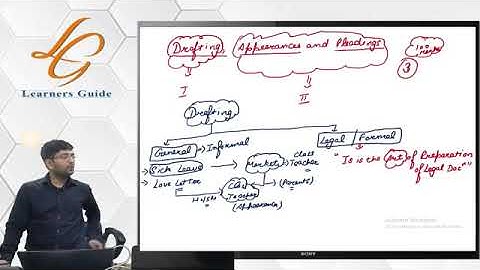 LG
Learners Guide
Drafting, Appearances and Pleadings
100 marks
3
I
II
Drafting
General → Informal
Legal / Formal
Sick Leave
Market
Class Teacher
"It is the Art of Preparation of Legal Doc"
Love Letter
Class Teacher
(Parents)
(Appearance)
SONY